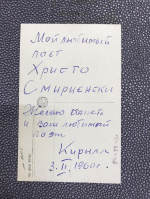 Мой любимый
поэт
Христо
Смирненски
Желаю
и Ваш любимый
поэт
Кирилл
3.II.1960г.